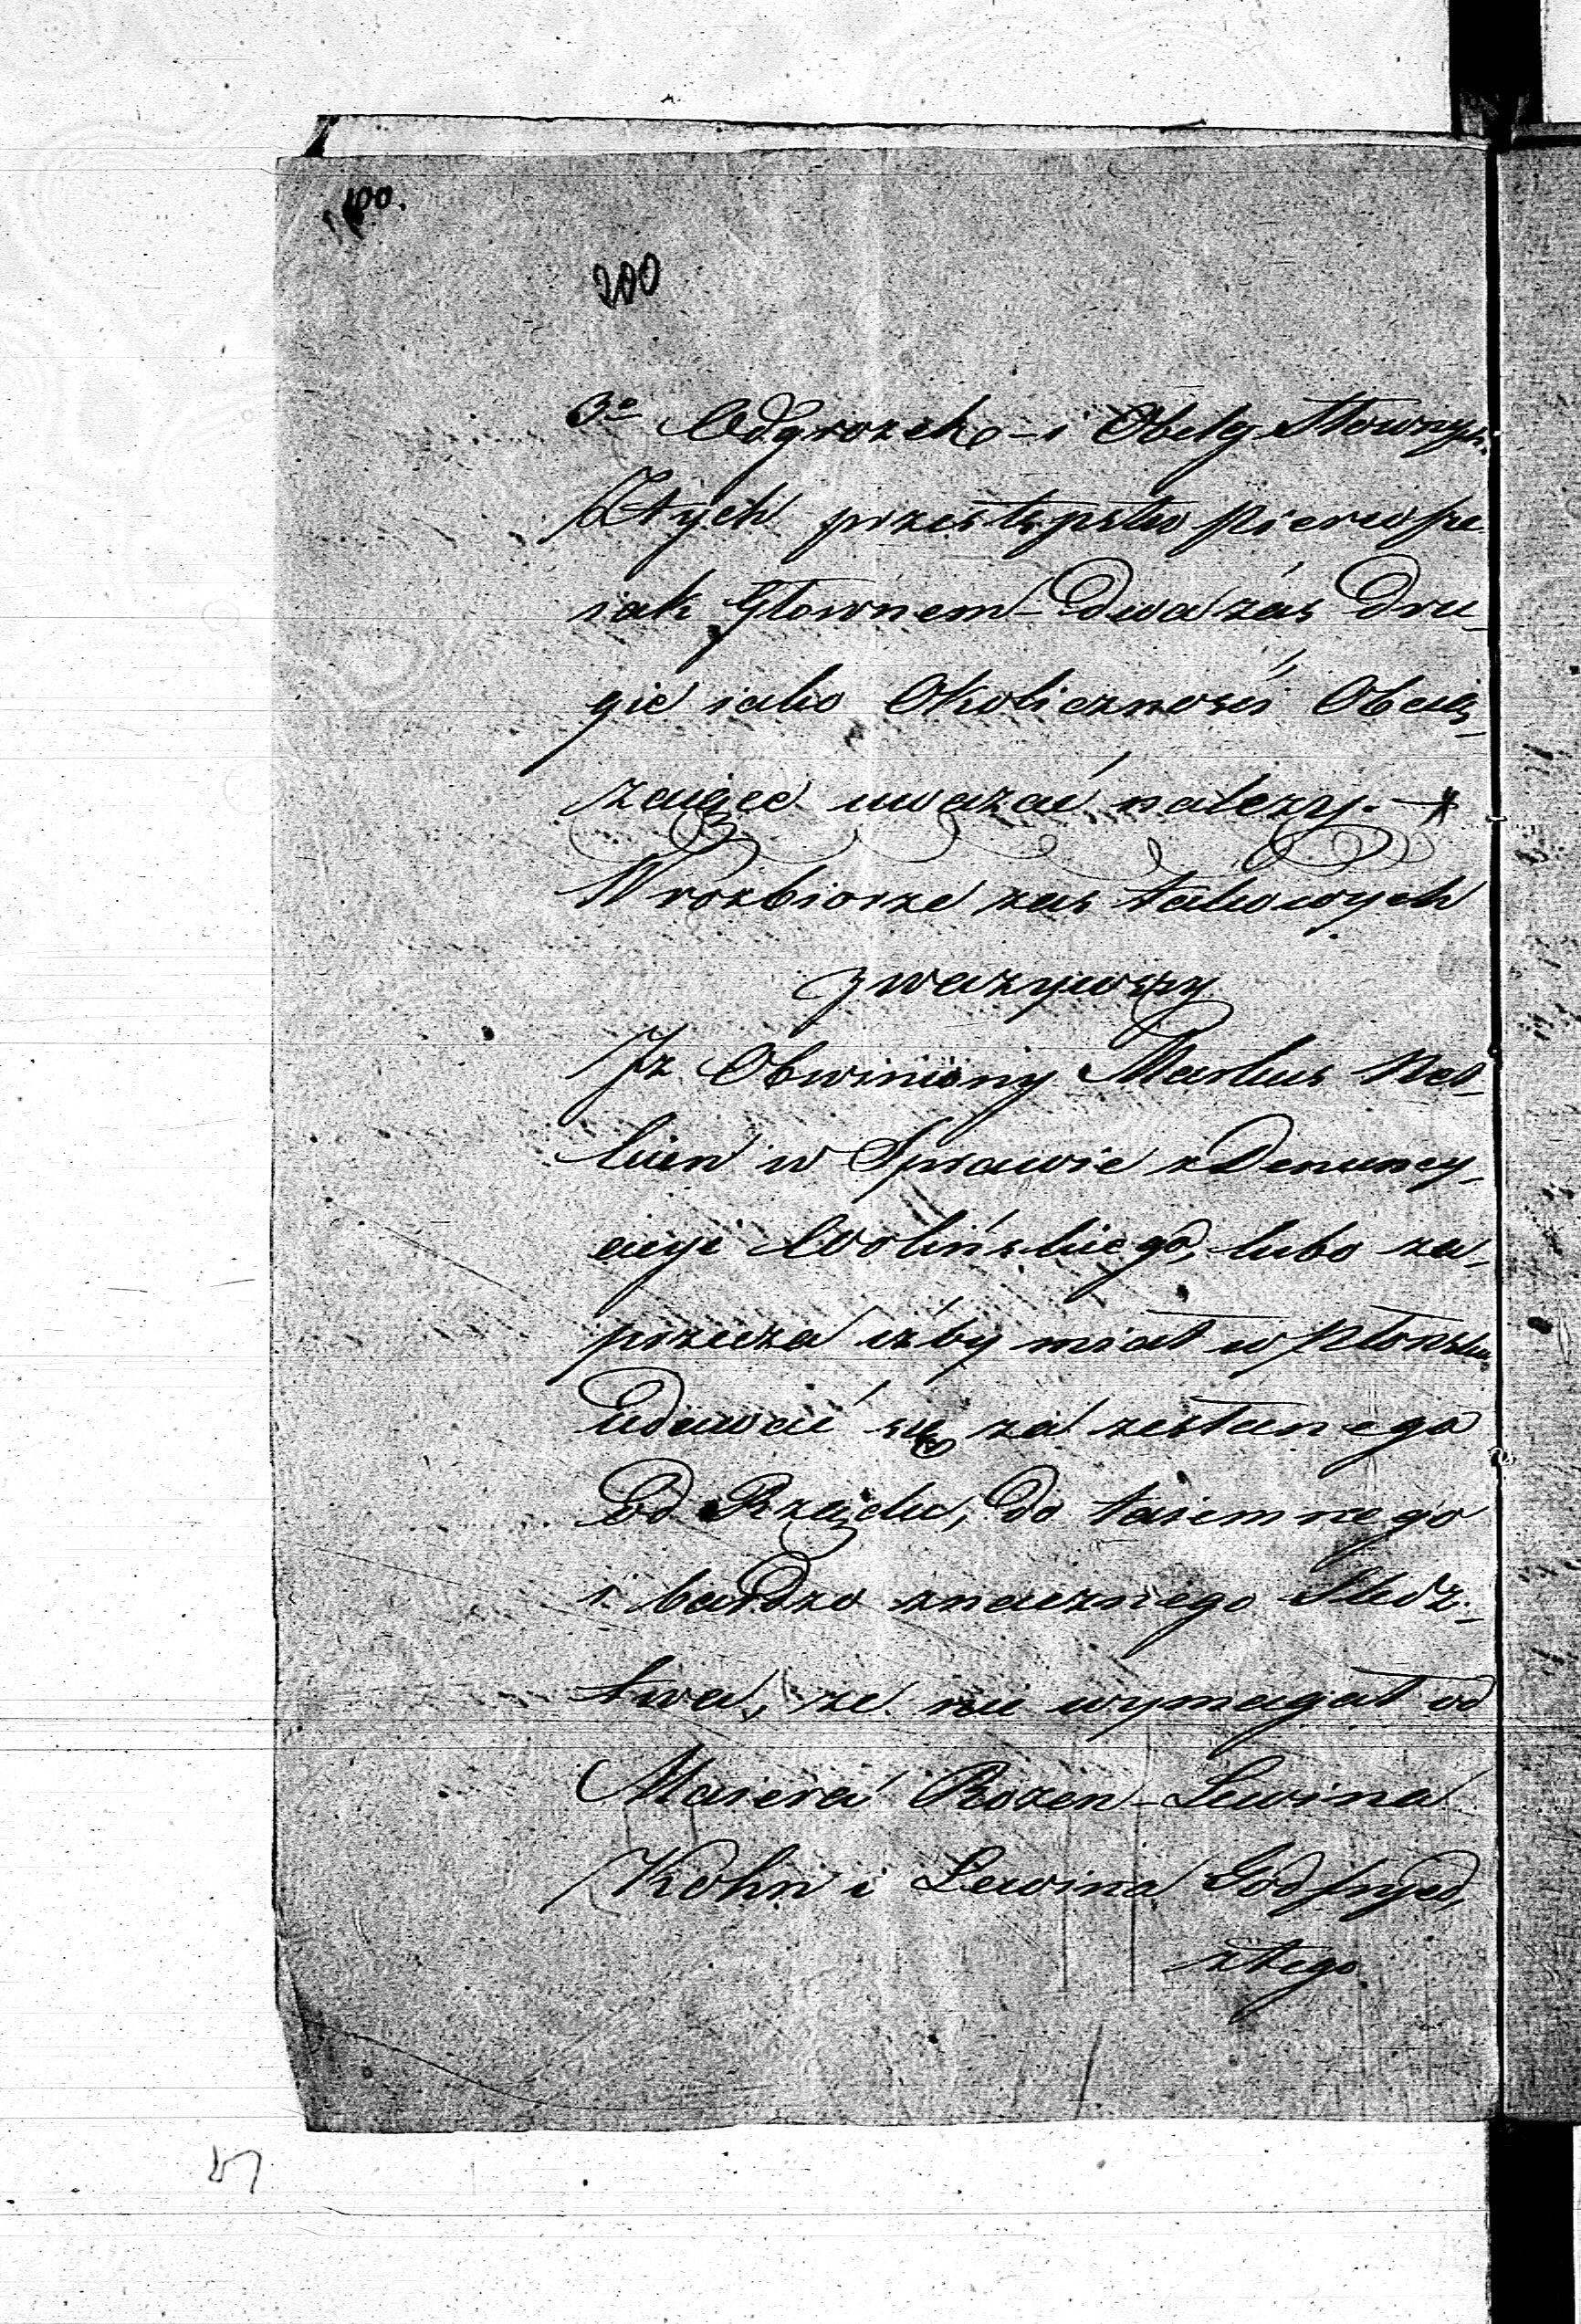 100.
200
3º Odgrozek - i Obelg Słownych.
Z tych przestępstw pierwsze
iak Głównem - Dwa zaś Dru_
gie iako Okoliczności Obcią_
zaiące uważać należy. -
W rozbiorze zaś takowych
zważywszy
Iż Obwiniony Markus Net_
kien w Sprawie z Denuncy_
acyi Wolińskiego, lubo za_
przecza iżby miał w Płońsku
Udawać się za zesłanego
Od Rządu, Do taiemnego
i bardzo znacznego Śledz_
twa, że nie wymagał od
Maiera Rozen - Lewina
Kohn i Lewina Godfryed,
z tego